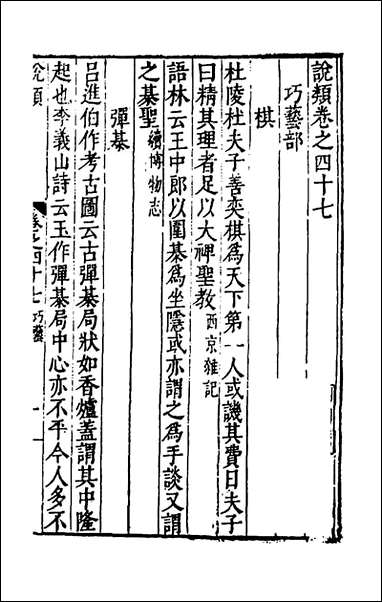 說類卷之四十七
巧藝部
棋
杜陵杜夫子善奕棋爲天下第一人或譏其費日夫子
曰精其理者足以大裨聖教西京雜記
語林云王中郎以圍棊爲坐隱或亦謂之爲手談又謂
之棊聖續博物志
彈棊
吕進伯作考古圖云古彈棊局狀如香爐蓋謂其中隆
起也李義山詩云玉作彈棊局中心亦不平今人多不
說類
卷之四十七 巧藝
一